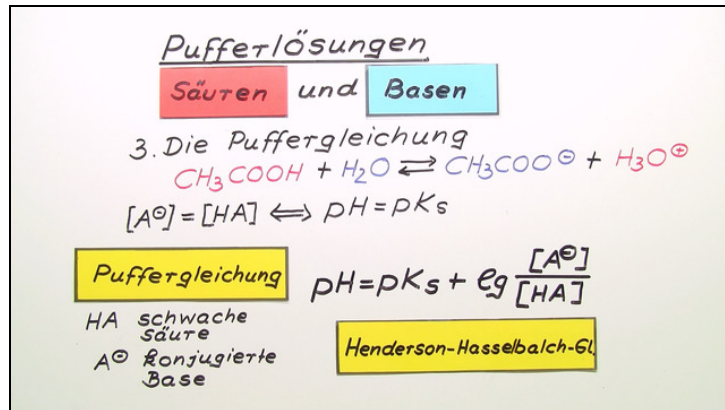 Pufferlösungen
Säuren und Basen
3. Die Puffergleichung
CH₃COOH + H₂O ⇌ CH₃COO⊖ + H₃O⊕
[A⊖] = [HA] ⟺ pH = pKs
Puffergleichung
pH = pKs + lg [A⊖]/[HA]
HA schwache
Säure
A⊖ konjugierte
Base
Henderson-Hasselbalch-Gl.